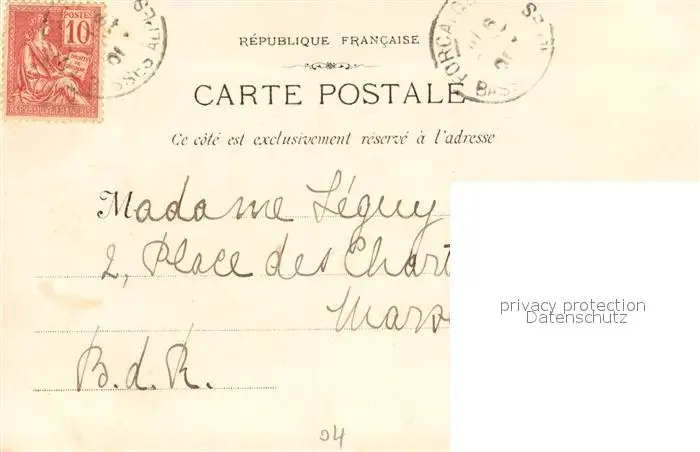 POSTES
10
RÉPUBLIQUE FRANÇAISE
BASSES ALPES
FORCALQ
BAS
RÉPUBLIQUE FRANÇAISE
CARTE POSTALE
Ce côté est exclusivement réservé à l'adresse
Madame Léguy
2, Place des Chart
Mars
B.d.R.
04
privacy protection
Datenschutz